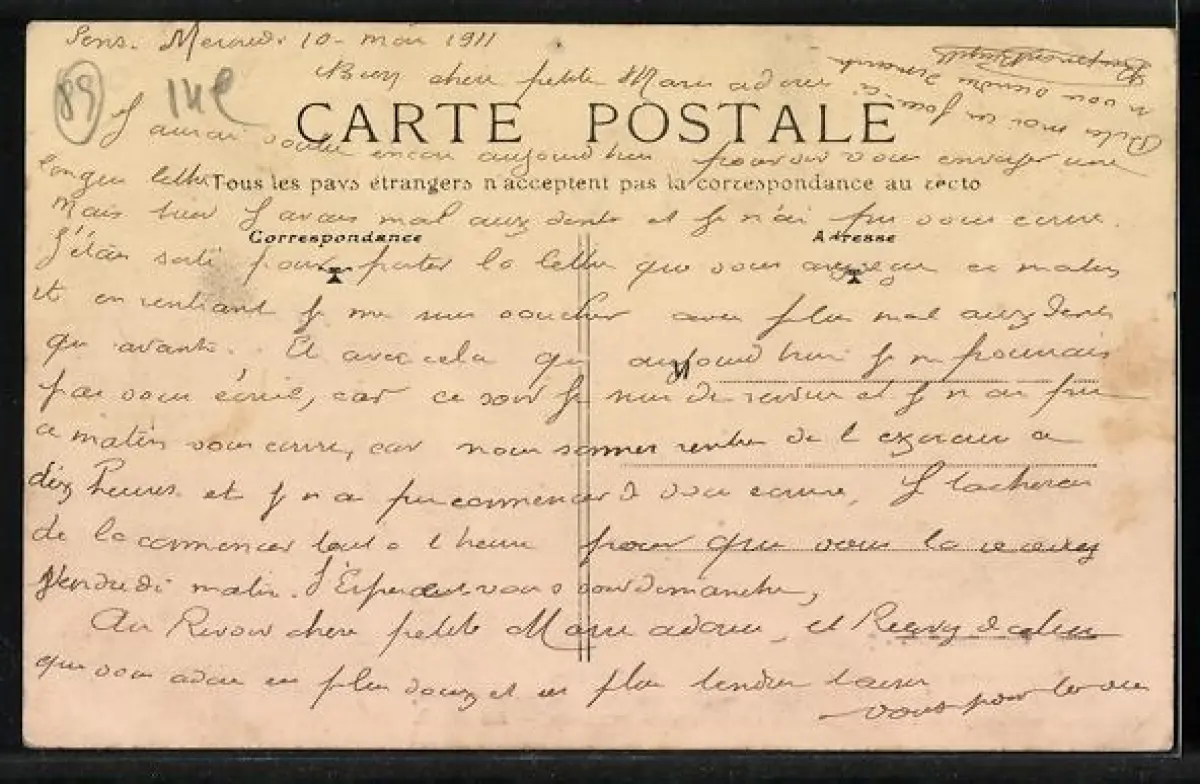 Sens. Mercredi 10 - mai 1911
89
14e
Bien chere petite Marie adorée
CARTE POSTALE
J aurai voulu encore aujourd hui pouvoir vous envoyer une
longue lettre
Tous les pays étrangers n'acceptent pas la correspondance au recto
Mais hier J avais mal aux dents et Je n'ai pu vous ecrire.
Correspondance
Adresse
J'étais sorti pour porter la lettre que vous avez reçu ce matin
et en rentrant Je me suis coucher avec plus mal aux dents
que avant. Et avec cela que aujourd hui Je ne pourrais
M
pas vous écrire, car ce soir Je suis de et J n ai pu
ce matin vous ecrire, car nous sommes rentrer de l exercice a
dix heures et J n a pu commencer a vous ecrire, J tacherai
de la commencer tout a l heure pour que vous la recevez
Vendredi matin. J'Esper vous dimanche,
Au Revoir chere petite Marie adorée, et Recevez de celui
que vous adore ses plus doux et ses plus tendres baisers
vous pour la vie
Dites moi un
vous